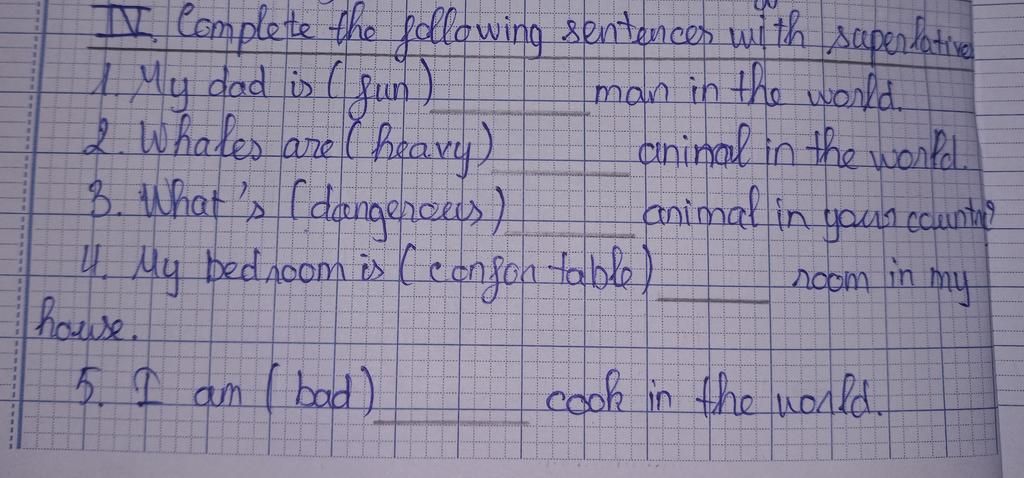 IV. Complete the following sentences with superlative
1. My dad is (fun) ______ man in the world.
2. Whales are (heavy) ______ animal in the world.
3. What's (dangerous) ______ animal in your country?
4. My bedroom is (confortable) ______ room in my
house.
5. I am (bad) ______ cook in the world.